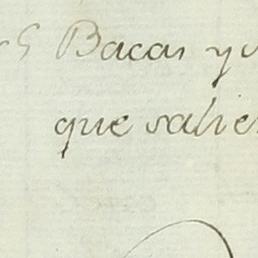 Bacas y
que salie